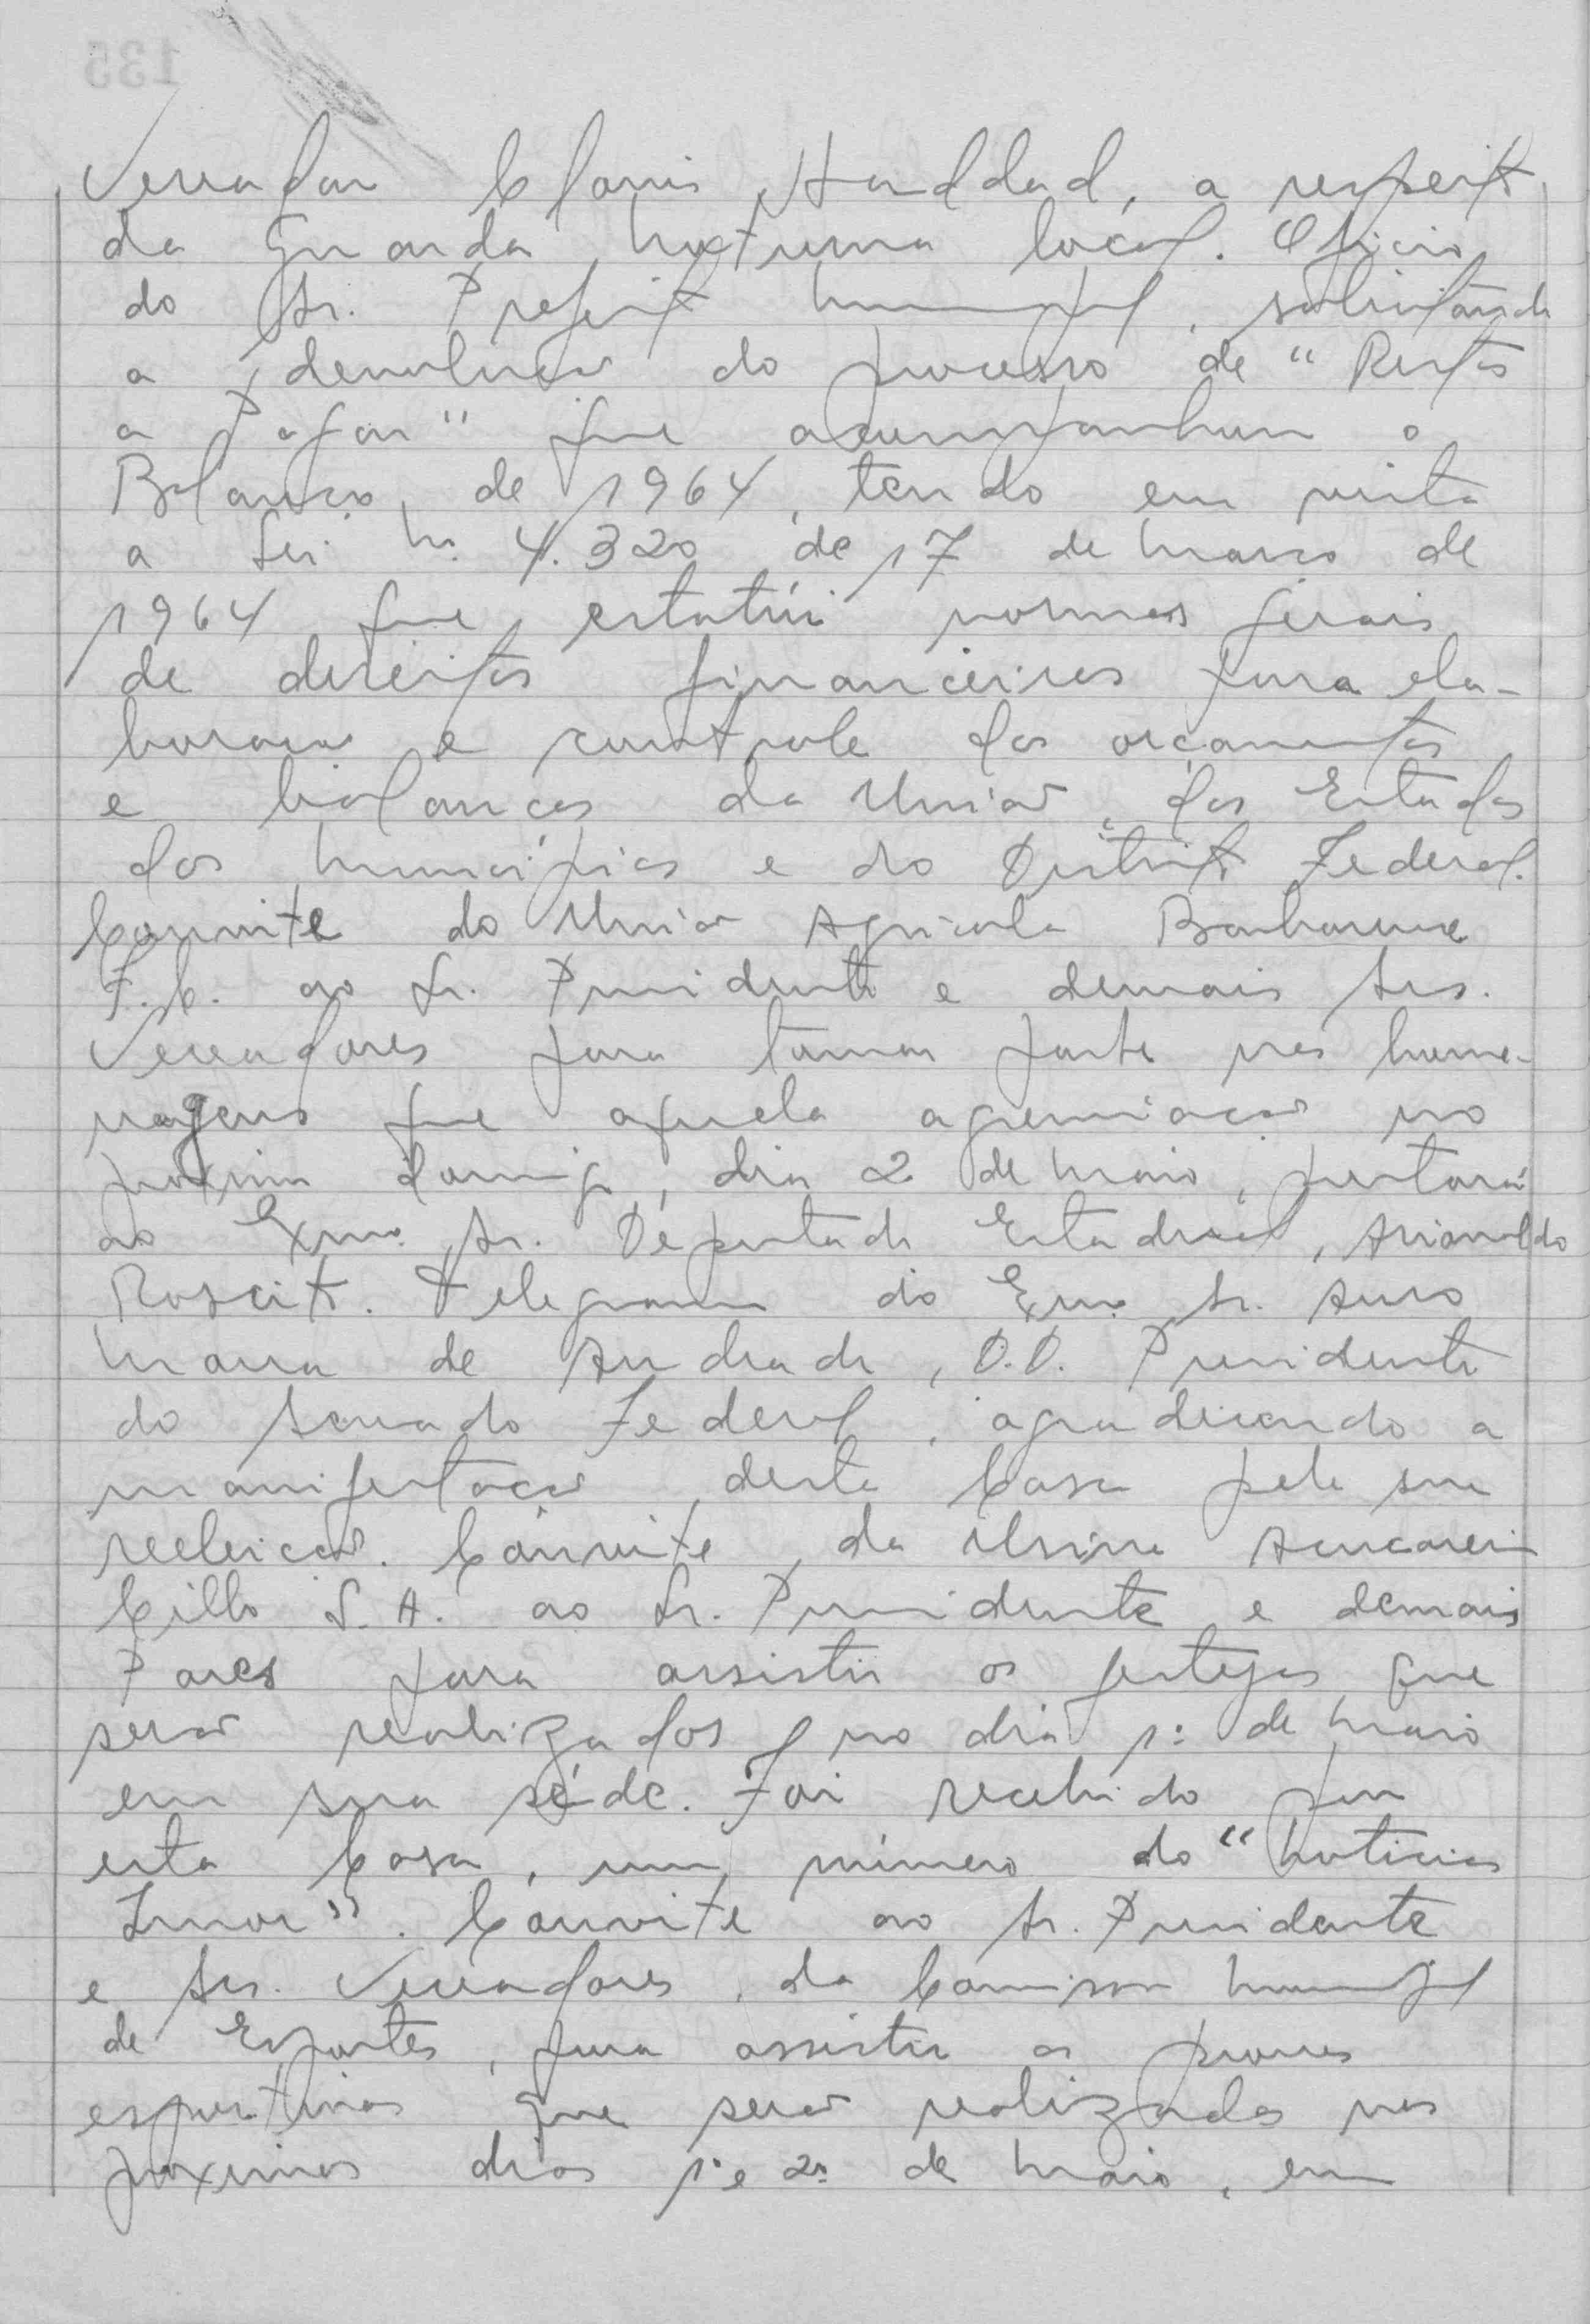 Vereador Clovis Haddad, a respeito
da Guarda Noturna local. Oficio
do Sr. Prefeito Municipal, solicitando
a devolução do processo de "Restos
a Pagar" que acompanham o
Balanço, de 1964, tendo em vista
a Lei n. 4.320 de 17 de Março de
1964 que estatúi normas gerais
de direitos financeiros para ela-
boração e controle dos orçamentos
e balanços da União, dos Estados
dos Municípios e do Distrito Federal.
Convite do União Agricola Barbarense
F.C. ao Sr. Presidente e demais Srs.
Vereadores para tomar parte nas home-
nagens que aquela agremiação no
próximo domingo, dia 2 de Maio, prestará
ao Exmo. Sr. Deputado Estadual,
Telegrama do Exmo. Sr. Auro
Moura de Andrade, D.D. Presidente
do Senado Federal, agradecendo a
manifestação desta Casa pela sua
reeleição. Convite, da Usina Açucareira
Cillo S.A. ao Sr. Presidente e demais
Pares para assistir os festejos que
serão realizados no dia 1º de Maio
em sua séde. Foi recebido por
esta Casa, um número do "Noticias
Convite ao Sr. Presidente
e Srs. Vereadores, da Comissão Municipal
de Esportes, para assistir as provas
esportivas que serão realizadas nos
próximos dias 1º e 2º de Maio, em